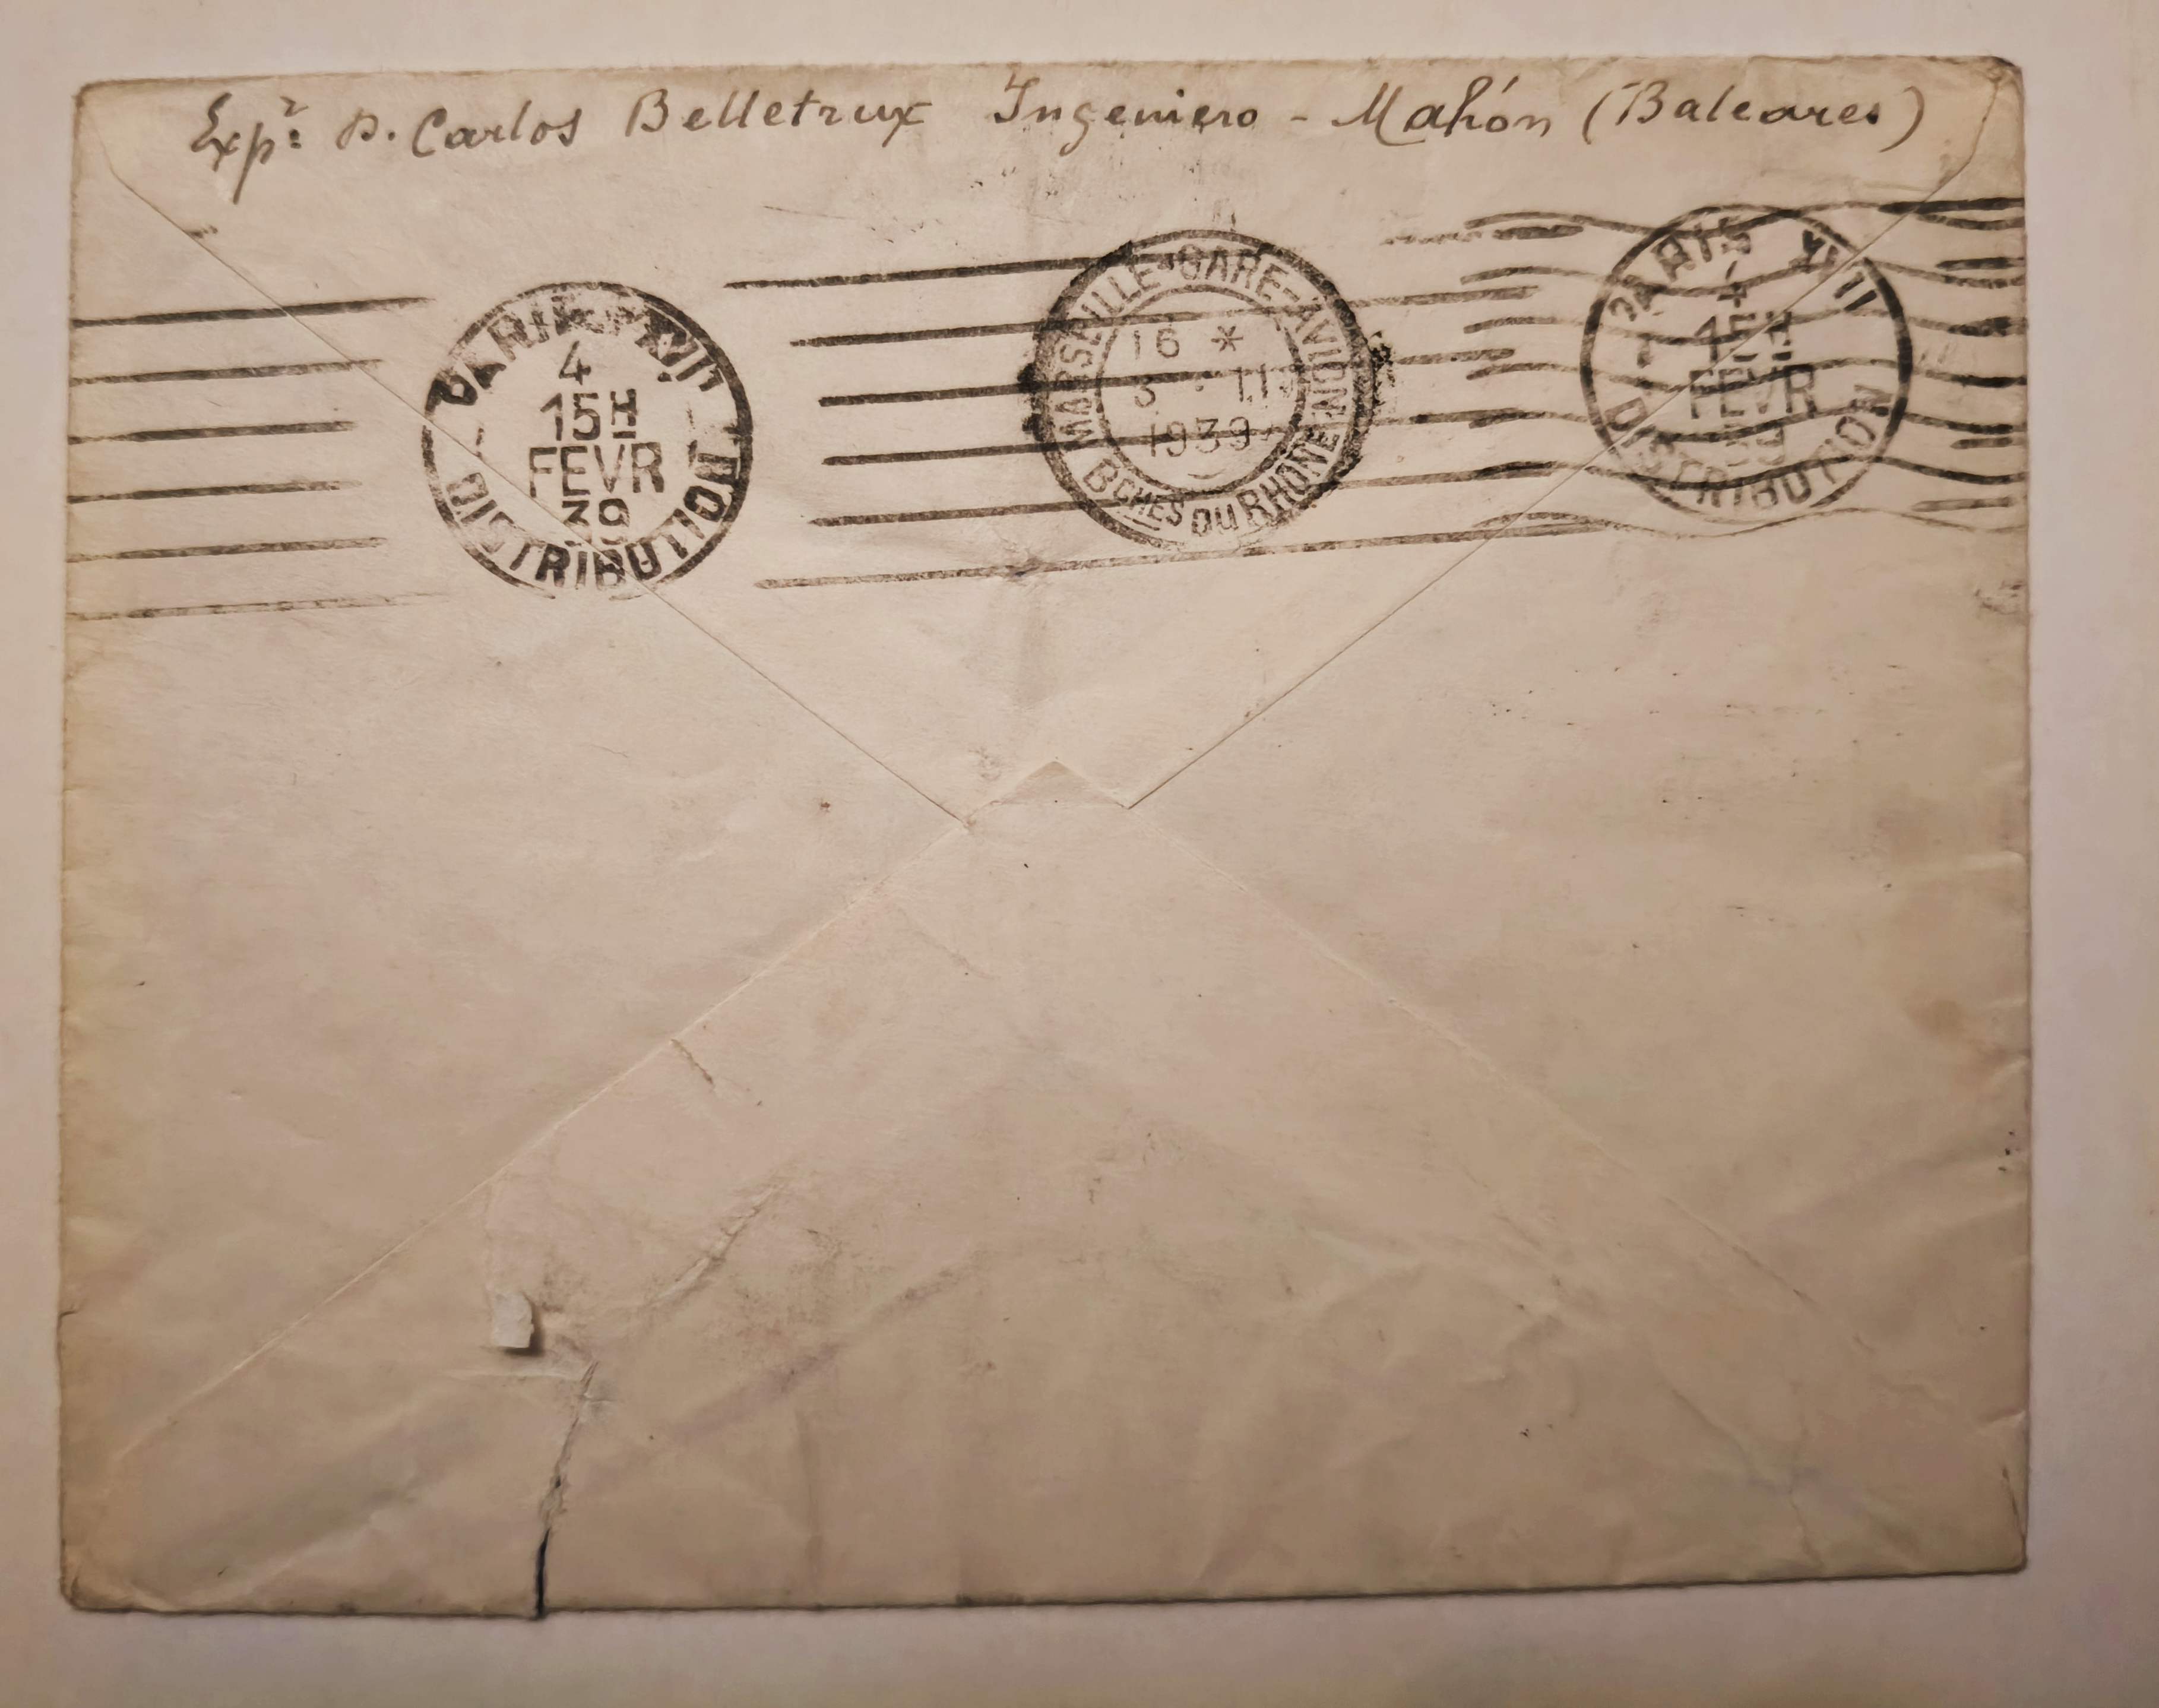 Expr: D. Carlos Belletrux Ingeniero - Mahón (Baleares)
PARIS XVII
4
15H
FEVR
39
DISTRIBUTION
MARSEILLE-GARE-AVION
16 *
3 · II
1939
BCHES DU RHONE
PARIS XVII
4
15H
FEVR
39
DISTRIBUTION